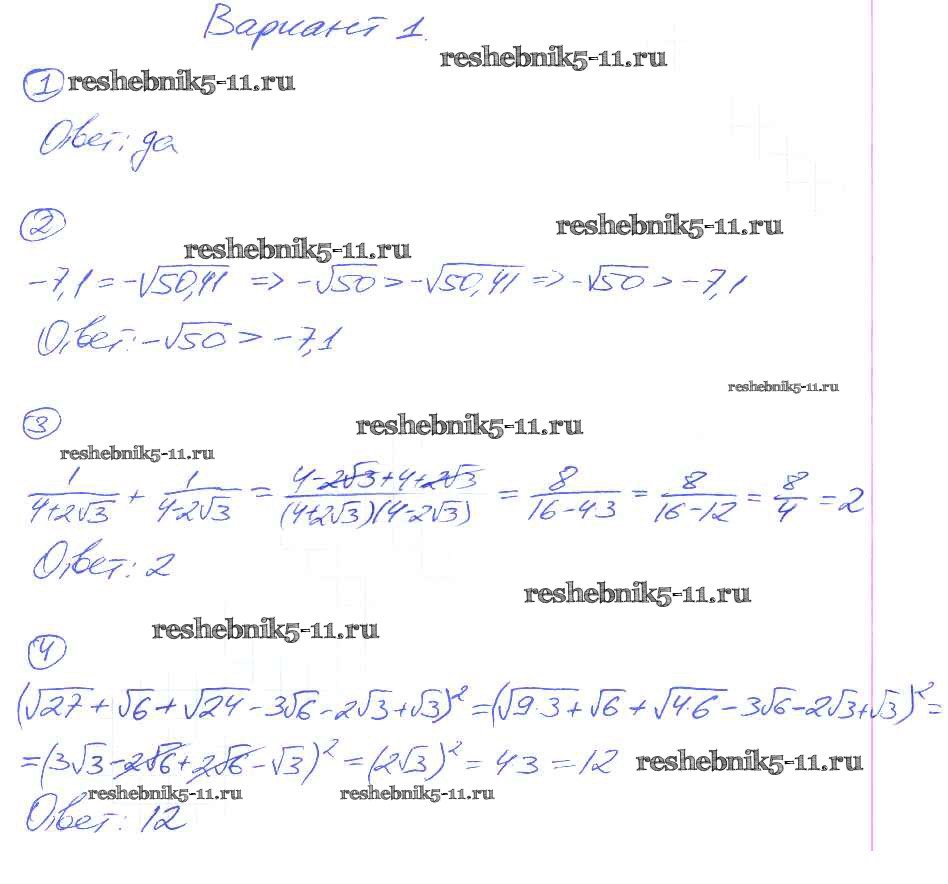 Вариант 1.
reshebnik5-11.ru
① reshebnik5-11.ru
Ответ: да
②
reshebnik5-11.ru
reshebnik5-11.ru
-7,1 = -√50,41 => -√50 > -√50,41 => -√50 > -7,1
Ответ: -√50 > -7,1
reshebnik5-11.ru
③
reshebnik5-11.ru
reshebnik5-11.ru
1/(4+2√3) + 1/(4-2√3) = (4-2√3+4+2√3)/((4+2√3)(4-2√3)) = 8/(16-4·3) = 8/(16-12) = 8/4 = 2
Ответ: 2
reshebnik5-11.ru
reshebnik5-11.ru
④
(√27 + √6 + √24 - 3√6 - 2√3 + √3)² = (√9·3 + √6 + √4·6 - 3√6 - 2√3 + √3)² =
= (3√3 - 2√6 + 2√6 - √3)² = (2√3)² = 4·3 = 12 reshebnik5-11.ru
reshebnik5-11.ru reshebnik5-11.ru
Ответ: 12